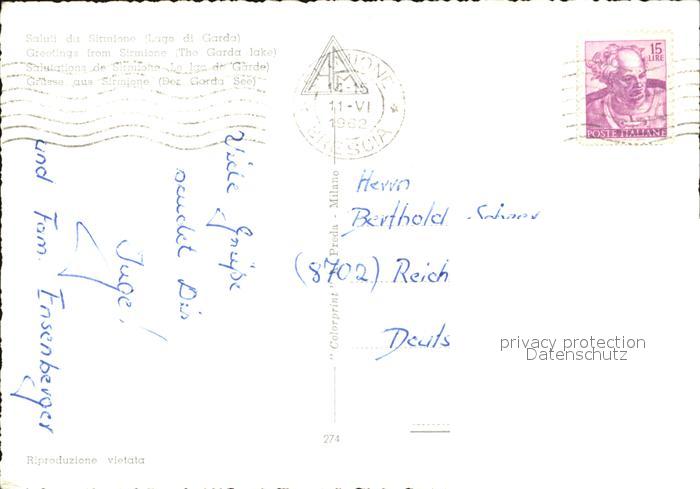 Saluti da Sirmione (Lago di Garda)
Greetings from Sirmione (The Garda lake)
Salutations de Sirmione (Le lac de Garde)
Grüsse aus Sirmione (Der Garda See)
SIRMIONE
14-15
11-VI
1962
BRESCIA
15
LIRE
POSTE ITALIANE
Viele Grüße
sendet Dir
Inge!
und Fam. Ensenberger
"Colorprint" Preda - Milano
Herrn
Berthold
(8702) Reich
Deuts
privacy protection
Datenschutz
274
Riproduzione vietata